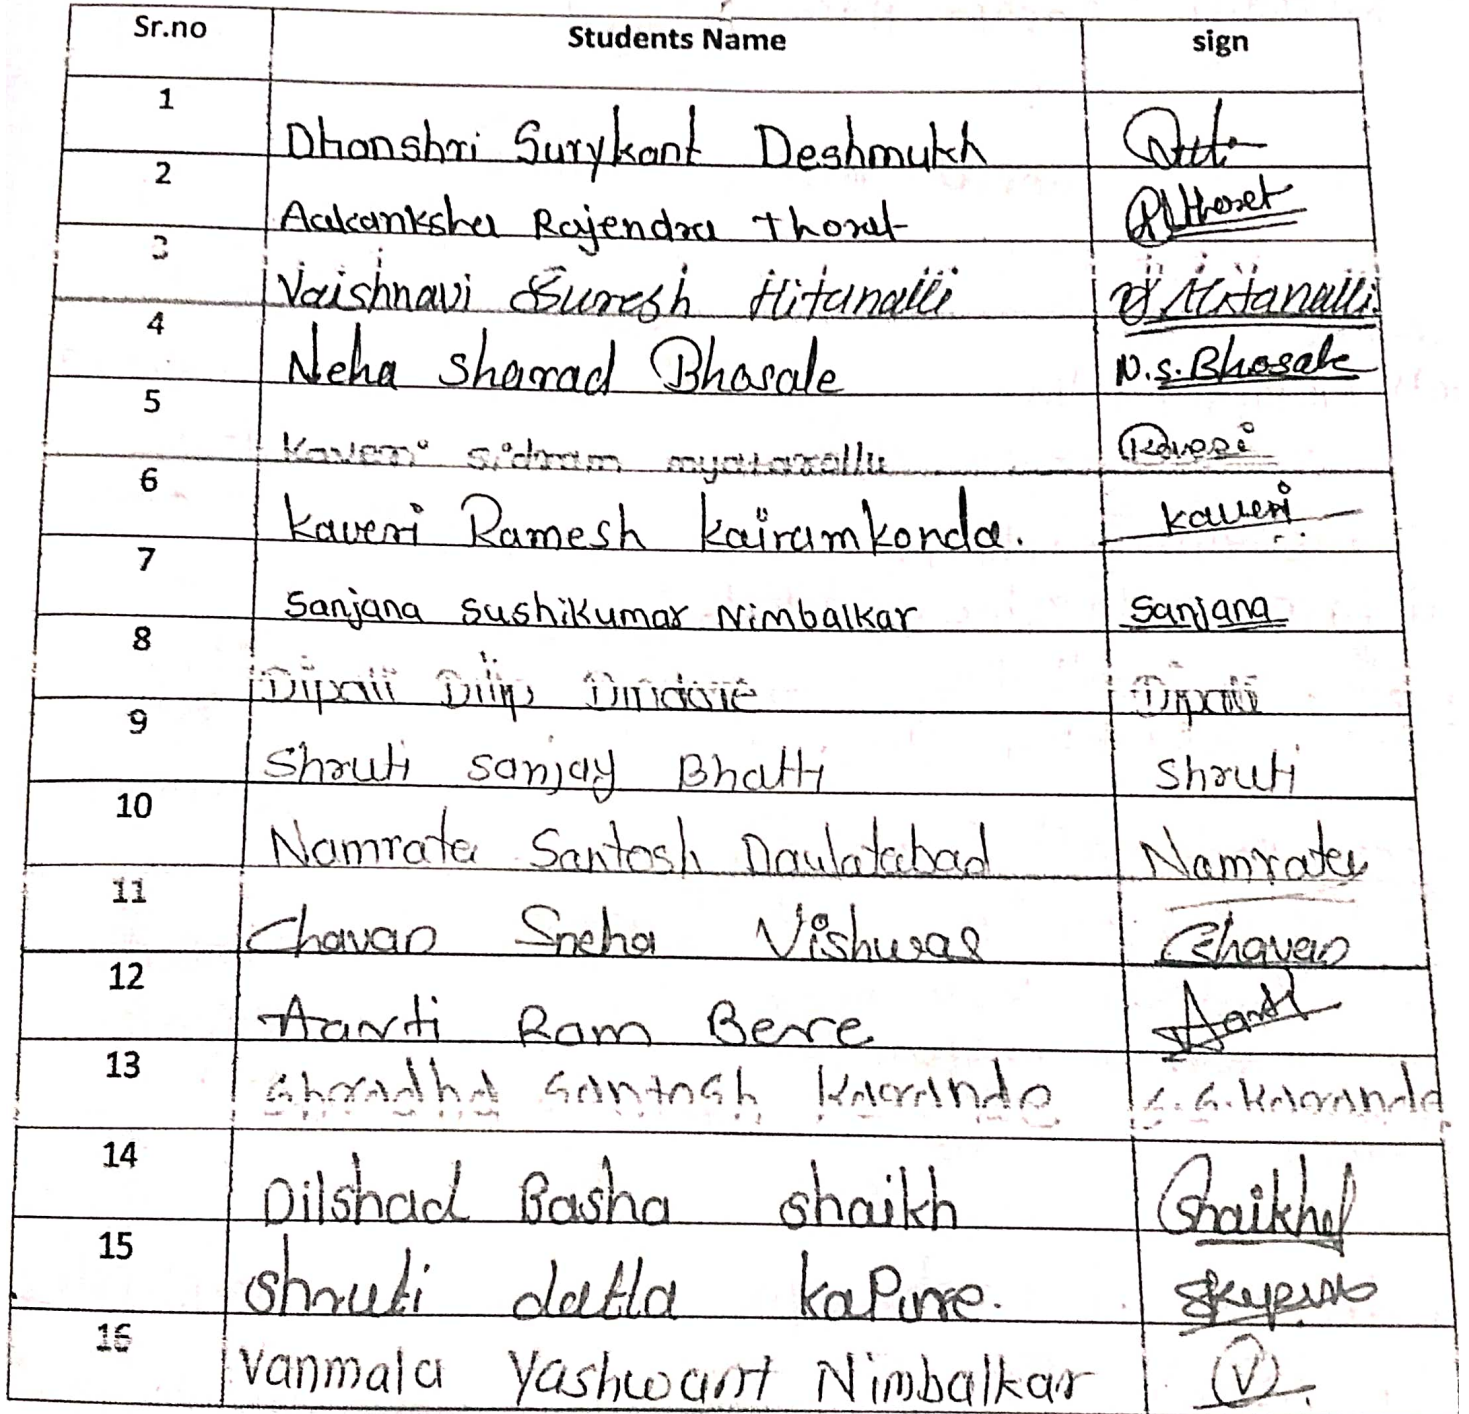 Sr.no Students Name sign
1 Dhanshri Surykant Deshmukh
2 Aakanksha Rajendra Thorat RThorat
3 Vaishnavi Suresh Hitanalli Hitanalli
4 Neha Sharad Bhosale N.S.Bhosale
5 Kaveri sidram Kaveri
6 Kaveri Ramesh Kairamkonda. Kaveri
7 Sanjana Sushilkumar Nimbalkar Sanjana
8 Dipali Dilip Dipali
9 Shruti Sanjay Bhatti Shruti
10 Namrata Santosh Daulatabad Namrata
11 Chavan Sneha Vishwas Chavan
12 Aarti Ram Bere Aarti
13 Shradha Santosh Karande S.S.Karande
14 Dilshad Basha shaikh Shaikh
15 Shruti datta kaPure.
16 Vanmala Yashwant Nimbalkar V